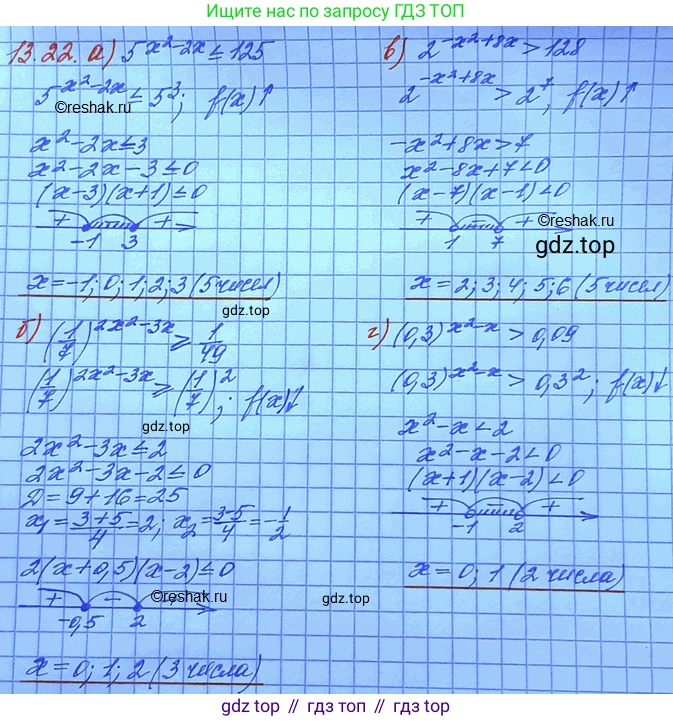 Ищите нас по запросу ГДЗ ТОП
13.22. а) 5^(x²-2x) ≤ 125
5^(x²-2x) ≤ 5³; f(x)↑
©reshak.ru
x²-2x≤3
x²-2x-3≤0
(x-3)(x+1)≤0
+ - +
-1 3
x=-1; 0; 1; 2; 3 (5 чисел)
gdz.top
в) 2^(-x²+8x) > 128
2^(-x²+8x) > 2⁷, f(x)↑
-x²+8x>7
x²-8x+7<0
(x-7)(x-1)<0
+ - +
©reshak.ru
1 7
gdz.top
x=2; 3; 4; 5; 6 (5 чисел)
б) (1/7)^(2x²-3x) ≥ 1/49
(1/7)^(2x²-3x) ≥ (1/7)²; f(x)↓
gdz.top
2x²-3x≤2
2x²-3x-2≤0
Д=9+16=25
x₁=(3+5)/4=2; x₂=(3-5)/4=-1/2
2(x+0,5)(x-2)≤0
+ -
©reshak.ru
-0,5 2
x=0; 1; 2 (3 числа)
г) (0,3)^(x²-x) > 0,09
(0,3)^(x²-x) > 0,3²; f(x)↓
x²-x<2
x²-x-2<0
(x+1)(x-2)<0
+ - +
-1 2
x=0; 1 (2 числа)
gdz.top
gdz.top // gdz.top // gdz.top // gdz.top